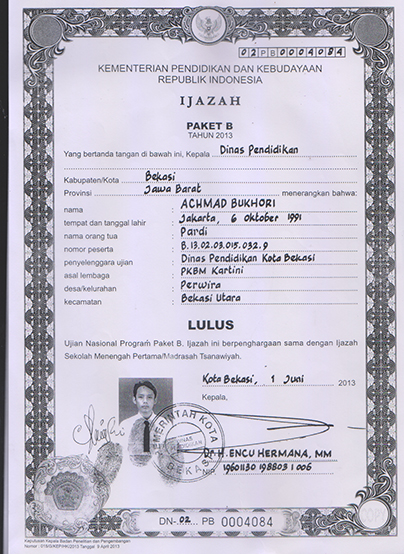 02 PB 0004084
KEMENTERIAN PENDIDIKAN DAN KEBUDAYAAN
REPUBLIK INDONESIA
IJAZAH
PAKET B
TAHUN 2013
Yang bertanda tangan di bawah ini, Kepala Dinas Pendidikan
Kabupaten/Kota : Bekasi
Provinsi : Jawa Barat menerangkan bahwa:
nama : ACHMAD BUKHORI
tempat dan tanggal lahir : Jakarta, 6 Oktober 1991
nama orang tua : Pardi
nomor peserta : B.13.02.03.015.032.9
penyelenggara ujian : Dinas Pendidikan Kota Bekasi
asal lembaga : PKBM Kartini
desa/kelurahan : Perwira
kecamatan : Bekasi Utara
LULUS
Ujian Nasional Program Paket B. Ijazah ini berpenghargaan sama dengan Ijazah
Sekolah Menengah Pertama/Madrasah Tsanawiyah.
Kota Bekasi, 1 Juni 2013
Kepala,
PEMERINTAH KOTA
DINAS PENDIDIKAN
BEKASI
Dr. H. ENCU HERMANA, MM
NIP. 19601130 198803 1 006
DN-.02... PB 0004084
Keputusan Kepala Badan Penelitian dan Pengembangan